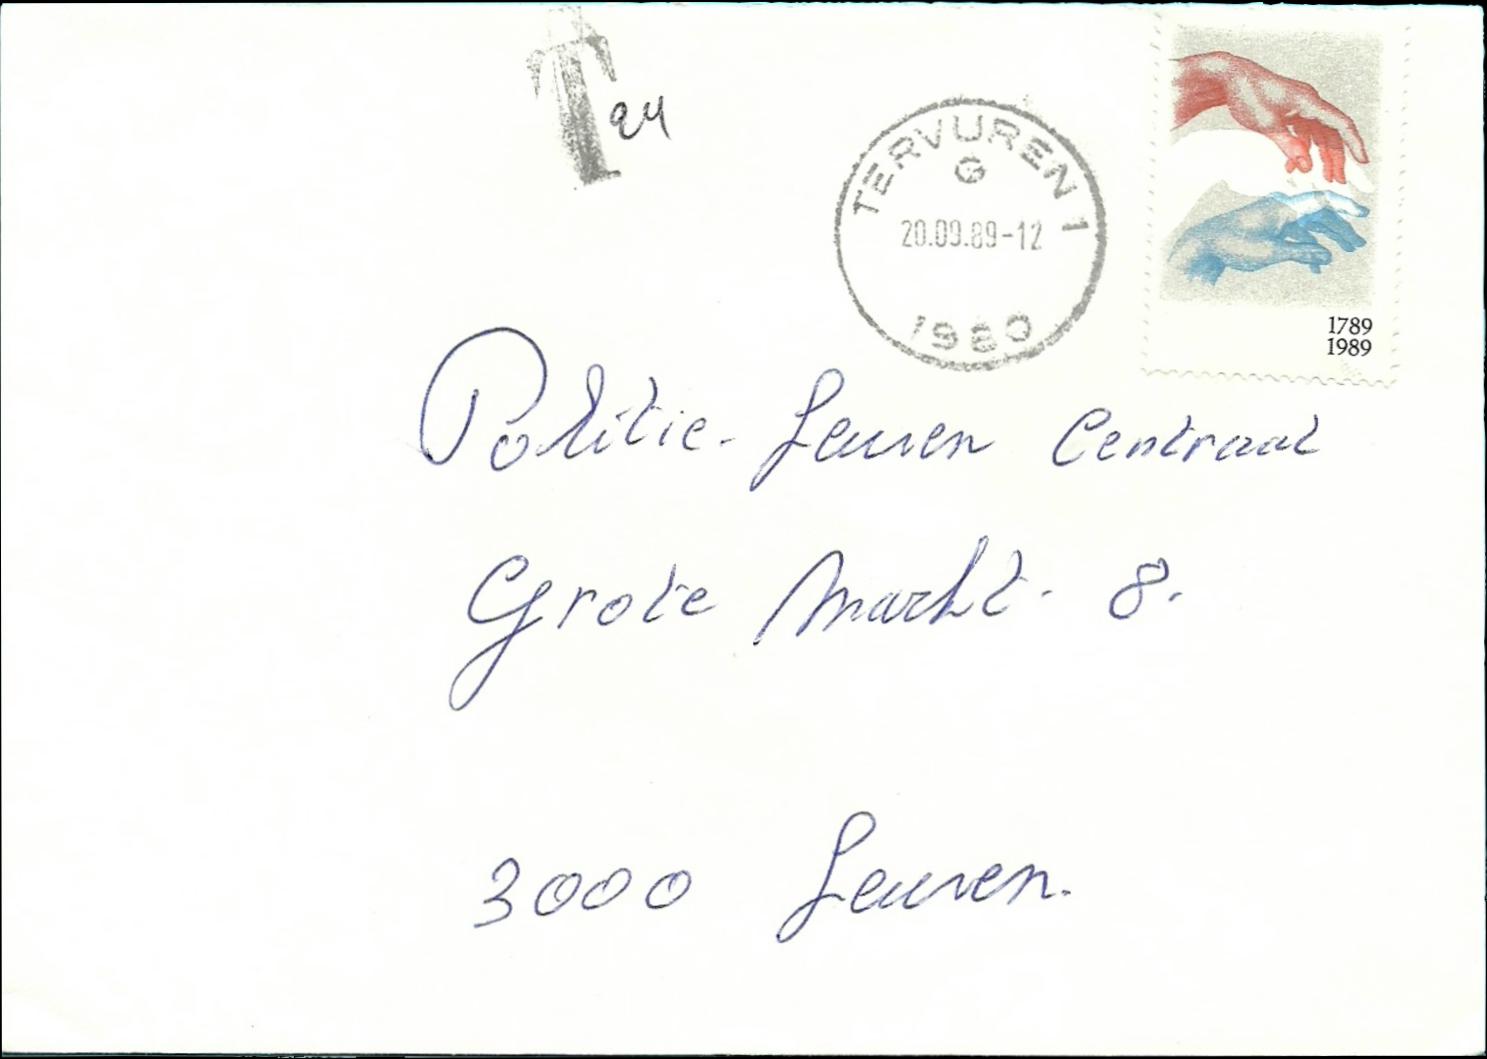 T 24
TERVUREN 1
G
20.09.89-12
1980
1789
1989
Politie - Leuven Centraal
Grote Markt - 8.
3000 Leuven.